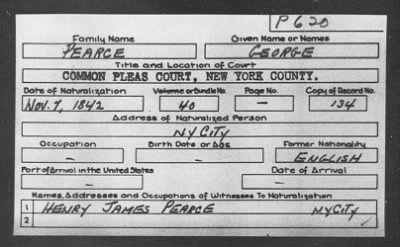 P620
Family Name Given Name or Names
PEARCE GEORGE
Title and Location of Court
COMMON PLEAS COURT, NEW YORK COUNTY.
Date of Naturalization Volume or Bundle No. Page No. Copy of Record No.
NOV. 7, 1842 40 — 134
Address of Naturalized Person
NY CITY
Occupation Birth Date or Age Former Nationality
— — ENGLISH
Port of Arrival in the United States Date of Arrival
— —
Names, Addresses and Occupations of Witnesses To Naturalization
1 HENRY JAMES PEARCE NY CITY
2